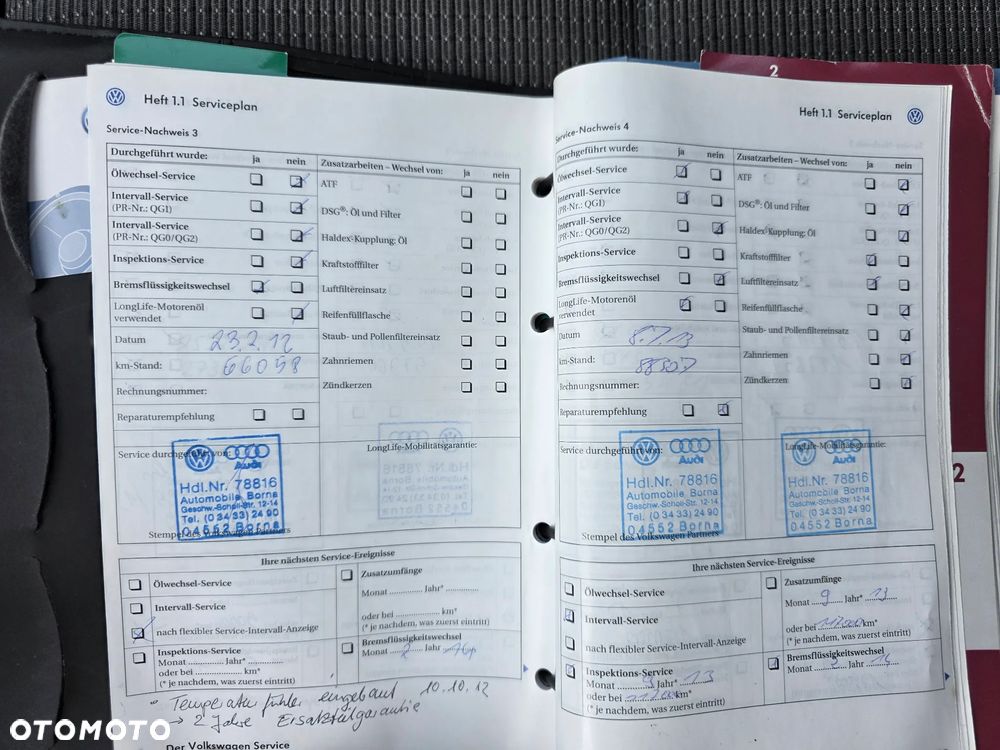 2
Heft 1.1 Serviceplan
Service-Nachweis 3
Durchgeführt wurde: ja nein
Ölwechsel-Service
Intervall-Service
(PR-Nr.: QG1)
Intervall-Service
(PR-Nr.: QG0/QG2)
Inspektions-Service
Bremsflüssigkeitswechsel
LongLife-Motorenöl
verwendet
Datum 23.2.12
km-Stand: 66058
Rechnungsnummer:
Reparaturempfehlung
Zusatzarbeiten – Wechsel von: ja nein
ATF
DSG®: Öl und Filter
Haldex-Kupplung: Öl
Kraftstofffilter
Luftfiltereinsatz
Reifenfüllflasche
Staub- und Pollenfiltereinsatz
Zahnriemen
Zündkerzen
Service durchgeführt von:
Audi
Hdl.Nr. 78816
Automobile Borna
Geschw.-Scholl-Str. 12-14
Tel. (0 34 33) 24 90
04552 Borna
Stempel des Volkswagen Partners
LongLife-Mobilitätsgarantie:
Ihre nächsten Service-Ereignisse
Ölwechsel-Service
Intervall-Service
nach flexibler Service-Intervall-Anzeige
Inspektions-Service
Monat ............... Jahr* ...............
oder bei ....................... km*
(* je nachdem, was zuerst eintritt)
Zusatzumfänge
Monat ............... Jahr* ...............
oder bei ....................... km*
(* je nachdem, was zuerst eintritt)
Bremsflüssigkeitswechsel
Monat 2 Jahr
Temperaturfühler eingebaut 10.10.12
→ 2 Jahre Ersatzteilgarantie
Der Volkswagen Service
Heft 1.1 Serviceplan
Service-Nachweis 4
Durchgeführt wurde: ja nein
Ölwechsel-Service
Intervall-Service
(PR-Nr.: QG1)
Intervall-Service
(PR-Nr.: QG0/QG2)
Inspektions-Service
Bremsflüssigkeitswechsel
LongLife-Motorenöl
verwendet
Datum 8.7.13
km-Stand:
Rechnungsnummer:
Reparaturempfehlung
Zusatzarbeiten – Wechsel von: ja nein
ATF
DSG®: Öl und Filter
Haldex-Kupplung: Öl
Kraftstofffilter
Luftfiltereinsatz
Reifenfüllflasche
Staub- und Pollenfiltereinsatz
Zahnriemen
Zündkerzen
Service durchgeführt von:
Audi
Hdl.Nr. 78816
Automobile Borna
Geschw.-Scholl-Str. 12-14
Tel. (0 34 33) 24 90
04552 Borna
Stempel des Volkswagen Partners
LongLife-Mobilitätsgarantie:
Audi
Hdl.Nr. 78816
Automobile Borna
Geschw.-Scholl-Str. 12-14
Tel. (0 34 33) 24 90
04552 Borna
Ihre nächsten Service-Ereignisse
Ölwechsel-Service
Intervall-Service
nach flexibler Service-Intervall-Anzeige
Inspektions-Service
Monat Jahr* 13
oder bei km*
(* je nachdem, was zuerst eintritt)
Zusatzumfänge
Monat 9 Jahr* 13
oder bei km*
(* je nachdem, was zuerst eintritt)
Bremsflüssigkeitswechsel
Monat Jahr
2
OTOMOTO